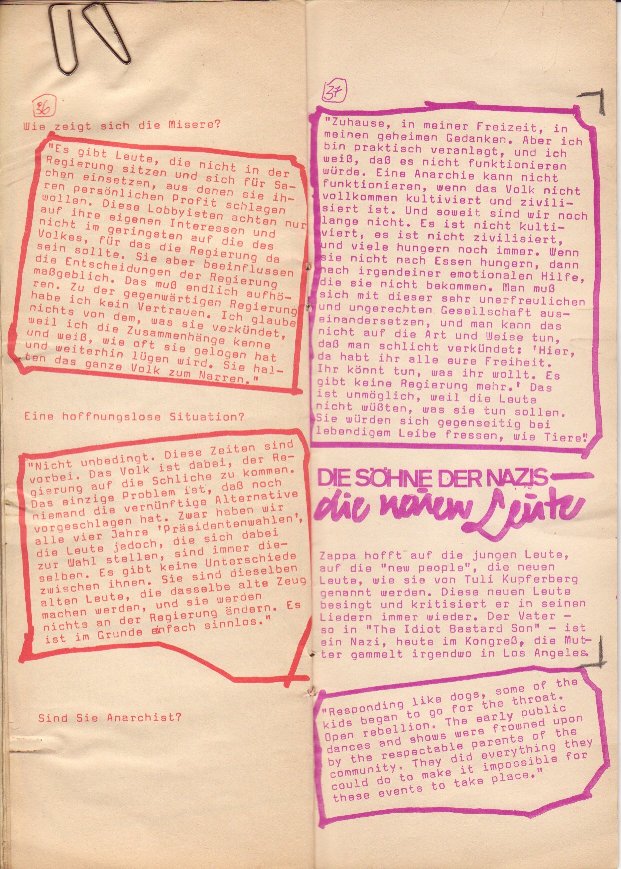 36
Wie zeigt sich die Misere?
"Es gibt Leute, die nicht in der
Regierung sitzen und sich für Sa-
chen einsetzen, aus denen sie ih-
ren persönlichen Profit schlagen
wollen. Diese Lobbyisten achten nur
auf ihre eigenen Interessen und
nicht im geringsten auf die des
Volkes, für das die Regierung da
sein sollte. Sie aber beeinflussen
die Entscheidungen der Regierung
maßgeblich. Das muß endlich aufhö-
ren. Zu der gegenwärtigen Regierung
habe ich kein Vertrauen. Ich glaube
nichts von dem, was sie verkündet,
weil ich die Zusammenhänge kenne
und weiß, wie oft sie gelogen hat
und weiterhin lügen wird. Sie hal-
ten das ganze Volk zum Narren."
Eine hoffnungslose Situation?
"Nicht unbedingt. Diese Zeiten sind
vorbei. Das Volk ist dabei, der Re-
gierung auf die Schliche zu kommen.
Das einzige Problem ist, daß noch
niemand die vernünftige Alternative
vorgeschlagen hat. Zwar haben wir
alle vier Jahre 'Präsidentenwahlen',
die Leute jedoch, die sich dabei
zur Wahl stellen, sind immer die-
selben. Es gibt keine Unterschiede
zwischen ihnen. Sie sind dieselben
alten Leute, die dasselbe alte Zeug
machen werden, und sie werden
nichts an der Regierung ändern. Es
ist im Grunde einfach sinnlos."
Sind Sie Anarchist?
37
"Zuhause, in meiner Freizeit, in
meinen geheimen Gedanken. Aber ich
bin praktisch veranlagt, und ich
weiß, daß es nicht funktionieren
würde. Eine Anarchie kann nicht
funktionieren, wenn das Volk nicht
vollkommen kultiviert und zivili-
siert ist. Und soweit sind wir noch
lange nicht. Es ist nicht kulti-
viert, es ist nicht zivilisiert,
und viele hungern noch immer. Wenn
sie nicht nach Essen hungern, dann
nach irgendeiner emotionalen Hilfe,
die sie nicht bekommen. Man muß
sich mit dieser sehr unerfreulichen
und ungerechten Gesellschaft aus-
einandersetzen, und man kann das
nicht auf die Art und Weise tun,
daß man schlicht verkündet: 'Hier,
da habt ihr alle eure Freiheit.
Ihr könnt tun, was ihr wollt. Es
gibt keine Regierung mehr.' Das
ist unmöglich, weil die Leute
nicht wüßten, was sie tun sollen.
Sie würden sich gegenseitig bei
lebendigem Leibe fressen, wie Tiere."
DIE SÖHNE DER NAZIS—
die neuen Leute
Zappa hofft auf die jungen Leute,
auf die "new people", die neuen
Leute, wie sie von Tuli Kupferberg
genannt werden. Diese neuen Leute
besingt und kritisiert er in seinen
Liedern immer wieder. Der Vater -
so in "The Idiot Bastard Son" - ist
ein Nazi, heute im Kongreß, die Mut-
ter gammelt irgendwo in Los Angeles.
"Responding like dogs, some of the
kids began to go for the throat.
Open rebellion. The early public
dances and shows were frowned upon
by the respectable parents of the
community. They did everything they
could do to make it impossible for
these events to take place."